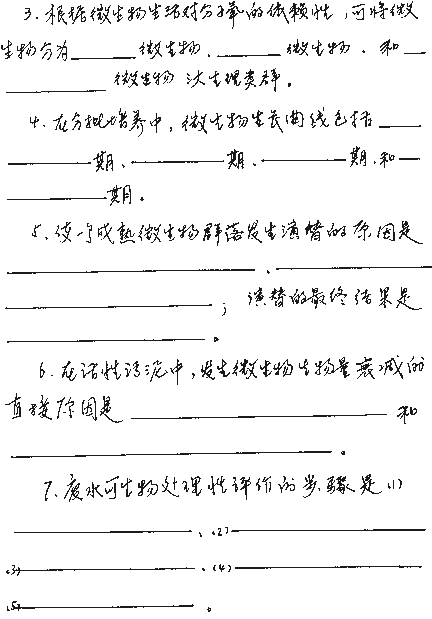 3. 根据微生物生活对分子氧的依赖性，可将微
生物分为______微生物、______微生物、和
______微生物 三大生理类群。
4. 在分批培养中，微生物生长曲线包括____
______期、______期、______期、和—
______期。
5. 使一个成熟微生物群落发生演替的原因是
____________、____________
____________；演替的最终结果是
____________。
6. 在活性污泥中，发生微生物生物量衰减的
直接原因是____________和
____________。
7. 废水可生物处理性评价的步骤是 (1)
____________、(2)____________
(3)____________、(4)____________
(5)____________。